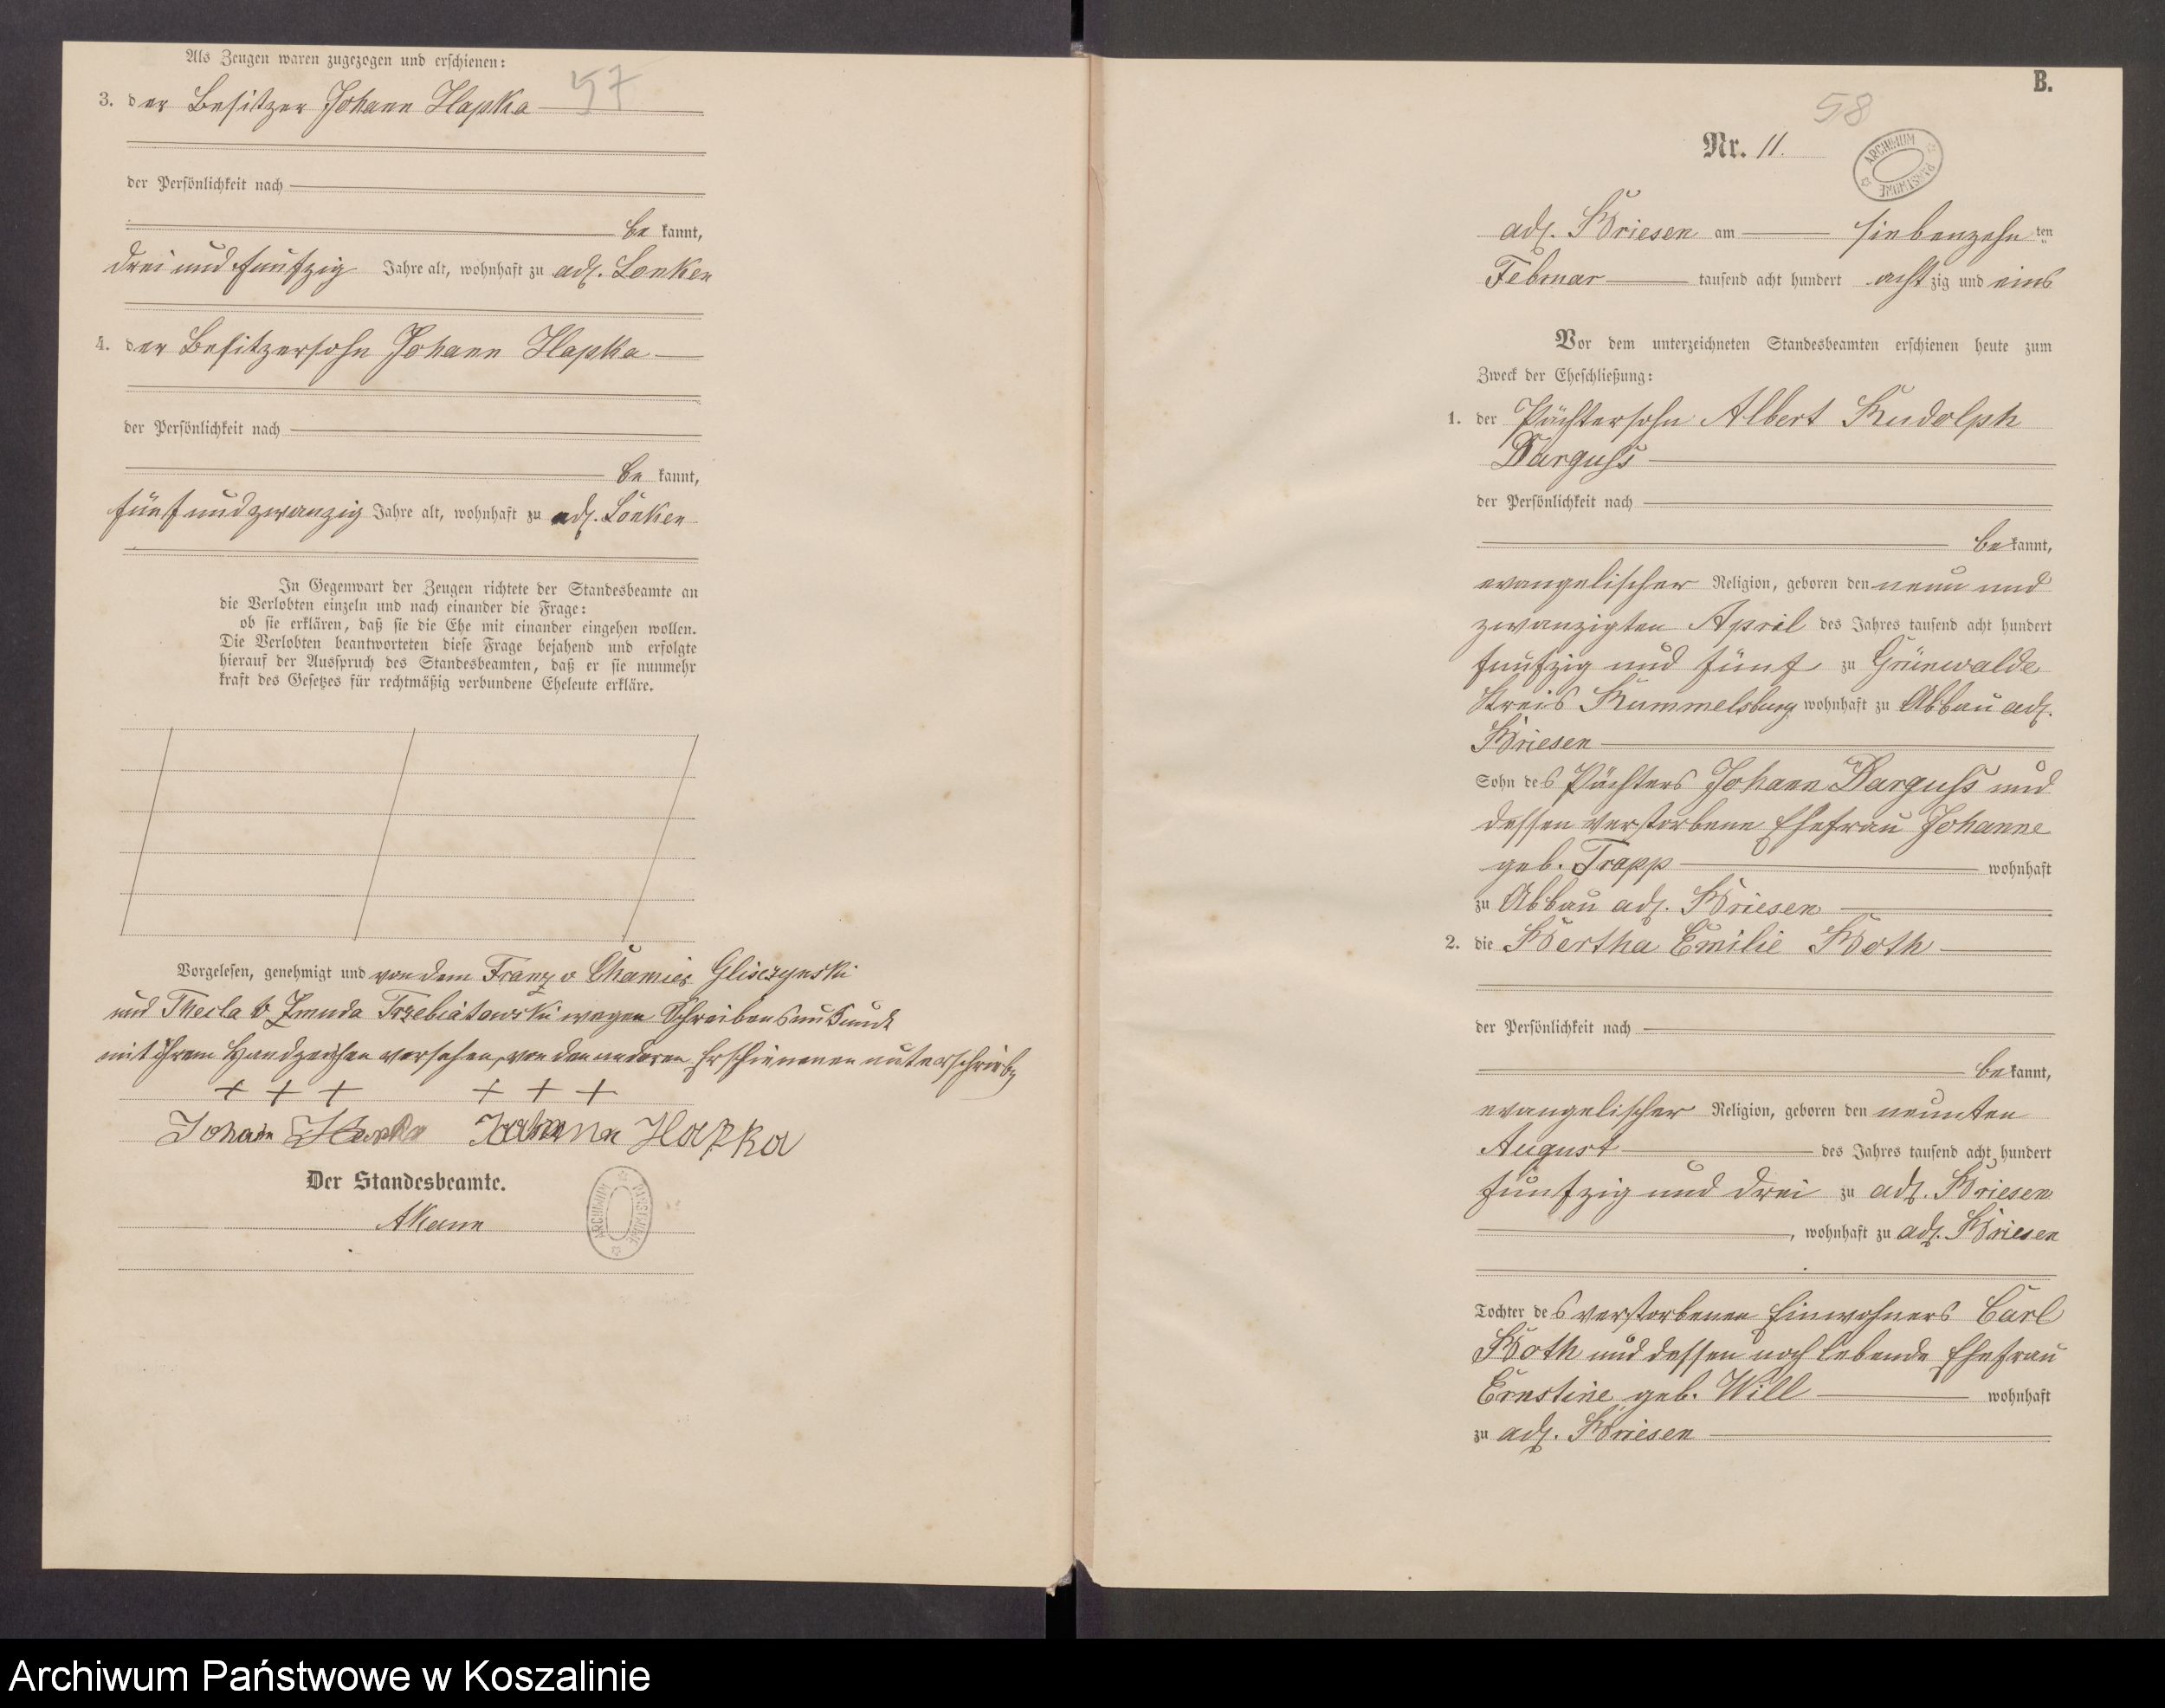 Als Zeugen waren zugezogen und erschienen:
57
3. der Besitzer Johann Hapka
der Persönlichkeit nach
be kannt,
drei und funfzig Jahre alt, wohnhaft zu adl. Lonken
4. der Besitzersohn Johann Hapka
der Persönlichkeit nach
be kannt,
fünf und zwanzig Jahre alt, wohnhaft zu adl. Lonken
In Gegenwart der Zeugen richtete der Standesbeamte an
die Verlobten einzeln und nach einander die Frage:
ob sie erklären, daß sie die Ehe mit einander eingehen wollen.
Die Verlobten beantworteten diese Frage bejahend und erfolgte
hierauf der Ausspruch des Standesbeamten, daß er sie nunmehr
kraft des Gesetzes für rechtmäßig verbundene Eheleute erkläre.
Vorgelesen, genehmigt und von dem Franz v Chamier Gliszynski
und Thecla v Zmuda Trzebiatowski wegen Schreibensunkunde
mit ihrem Handzeichen versehen, von den anderen Erschienenen unterschrieben
+ + + + + +
Johann Hapka Johann Hapka
Der Standesbeamte.
ARCHIWUM PAŃSTWOWE
B.
58
Nr. 11.
ARCHIWUM PAŃSTWOWE
adl. Briesen am siebenzehn ten
Februar tausend acht hundert acht zig und eins
Vor dem unterzeichneten Standesbeamten erschienen heute zum
Zweck der Eheschließung:
1. der Pächtersohn Albert Rudolph
Darguss
der Persönlichkeit nach
be kannt,
evangelischer Religion, geboren den neun und
zwanzigten April des Jahres tausend acht hundert
funfzig und fünf zu Grünwalde
Kreis Rummelsburg wohnhaft zu Abbau adl.
Briesen
Sohn des Pächters Johann Darguss und
dessen verstorbene Ehefrau Johanne
geb. Trapp wohnhaft
zu Abbau adl. Briesen
2. die Bertha Emilie Both
der Persönlichkeit nach
be kannt,
evangelischer Religion, geboren den neunten
August des Jahres tausend acht hundert
funfzig und drei zu adl. Briesen
, wohnhaft zu adl. Briesen
Tochter des verstorbenen Einwohners Carl
Both und dessen noch lebende Ehefrau
Ernstine geb. Will wohnhaft
zu adl. Briesen
Archiwum Państwowe w Koszalinie